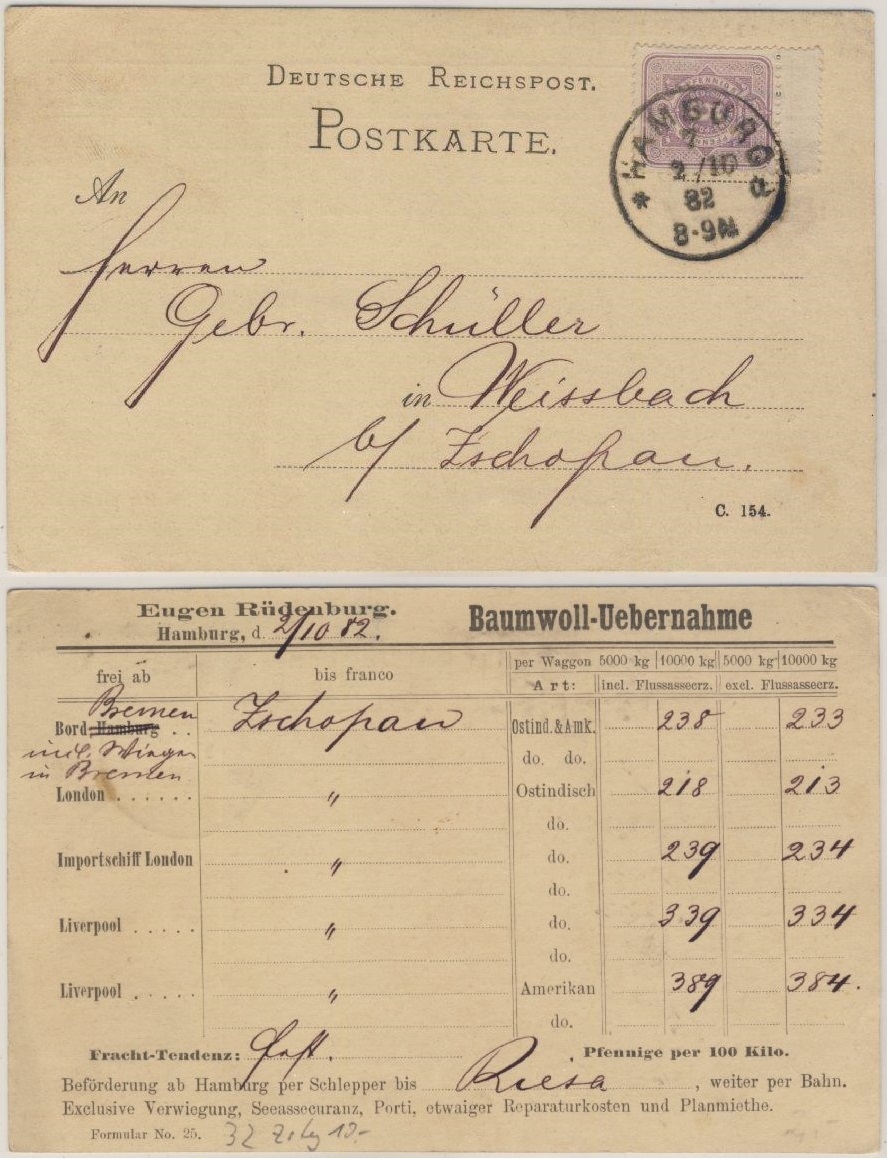 DEUTSCHE REICHSPOST.
POSTKARTE.
HAMBURG
2/10
82
8-9N
An
Herren
Gebr. Schüller
in Weissbach
b/ Zschopau.
C. 154.
Eugen Rüdenburg. Baumwoll-Uebernahme
Hamburg, d. 2/10 82.
frei ab bis franco per Waggon 5000 kg 10000 kg 5000 kg 10000 kg
Art: incl. Flussassecrz. excl. Flussassecrz.
Bremen
Bord Hamburg . . Zschopau Ostind. & Amk. 238 233
incl. Wiegen do. do.
in Bremen
London . . . . . . " Ostindisch 218 213
do.
Importschiff London " do. 239 234
do.
Liverpool . . . . . " do. 339 334
do.
Liverpool . . . . . " Amerikan 389 384.
do.
Fracht-Tendenz: fest. Pfennige per 100 Kilo.
Beförderung ab Hamburg per Schlepper bis Riesa, weiter per Bahn.
Exclusive Verwiegung, Seeassecuranz, Porti, etwaiger Reparaturkosten und Planmiethe.
Formular No. 25. 32